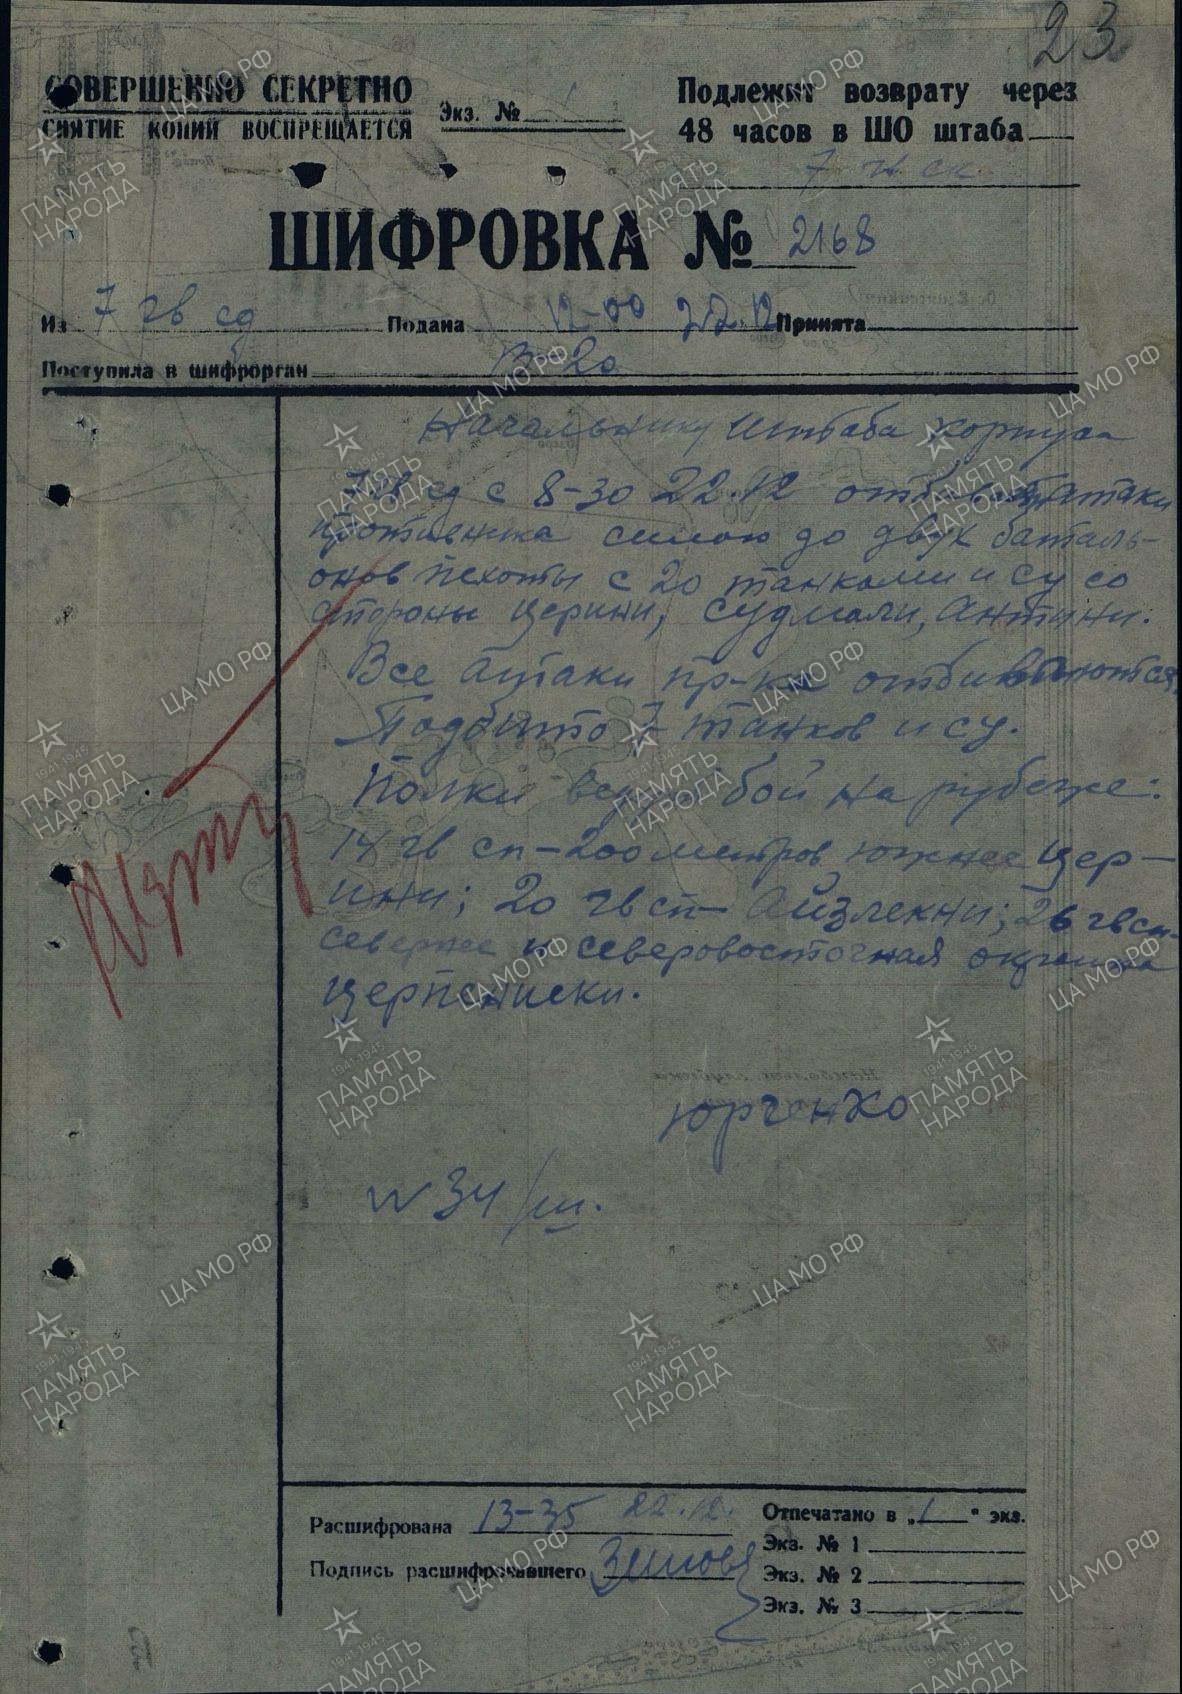 23
СОВЕРШЕННО СЕКРЕТНО
СНЯТИЕ КОПИЙ ВОСПРЕЩАЕТСЯ
Экз. № 1
Подлежит возврату через
48 часов в ШО штаба
7 ск
ШИФРОВКА № 2168
Из 7 гв сд Подана 12-00 22.12 Принята
Поступила в шифрорган 13-20
Начальнику штаба корпуса
7 гв сд с 8-30 22.12 атаки
противника силою до двух баталь-
онов пехоты с 20 танками и су со
стороны Церини, Судмали, Антини.
Все атаки пр-ка отбиваются.
Подбито 7 танков и су.
Полки ведут бой на рубеже:
14 гв сп - 200 метров южнее Цер-
ини; 20 гв сп - Айзлекни; 26 гв сп -
севернее и северовосточная окраина
Церпениеки.
Юрченко
N 34/ш.
Расшифрована 13-35 22.12.
Подпись расшифровавшего
Отпечатано в „1" экз.
Экз. № 1
Экз. № 2
Экз. № 3
ПАМЯТЬ НАРОДА
1941-1945
ЦА МО РФ